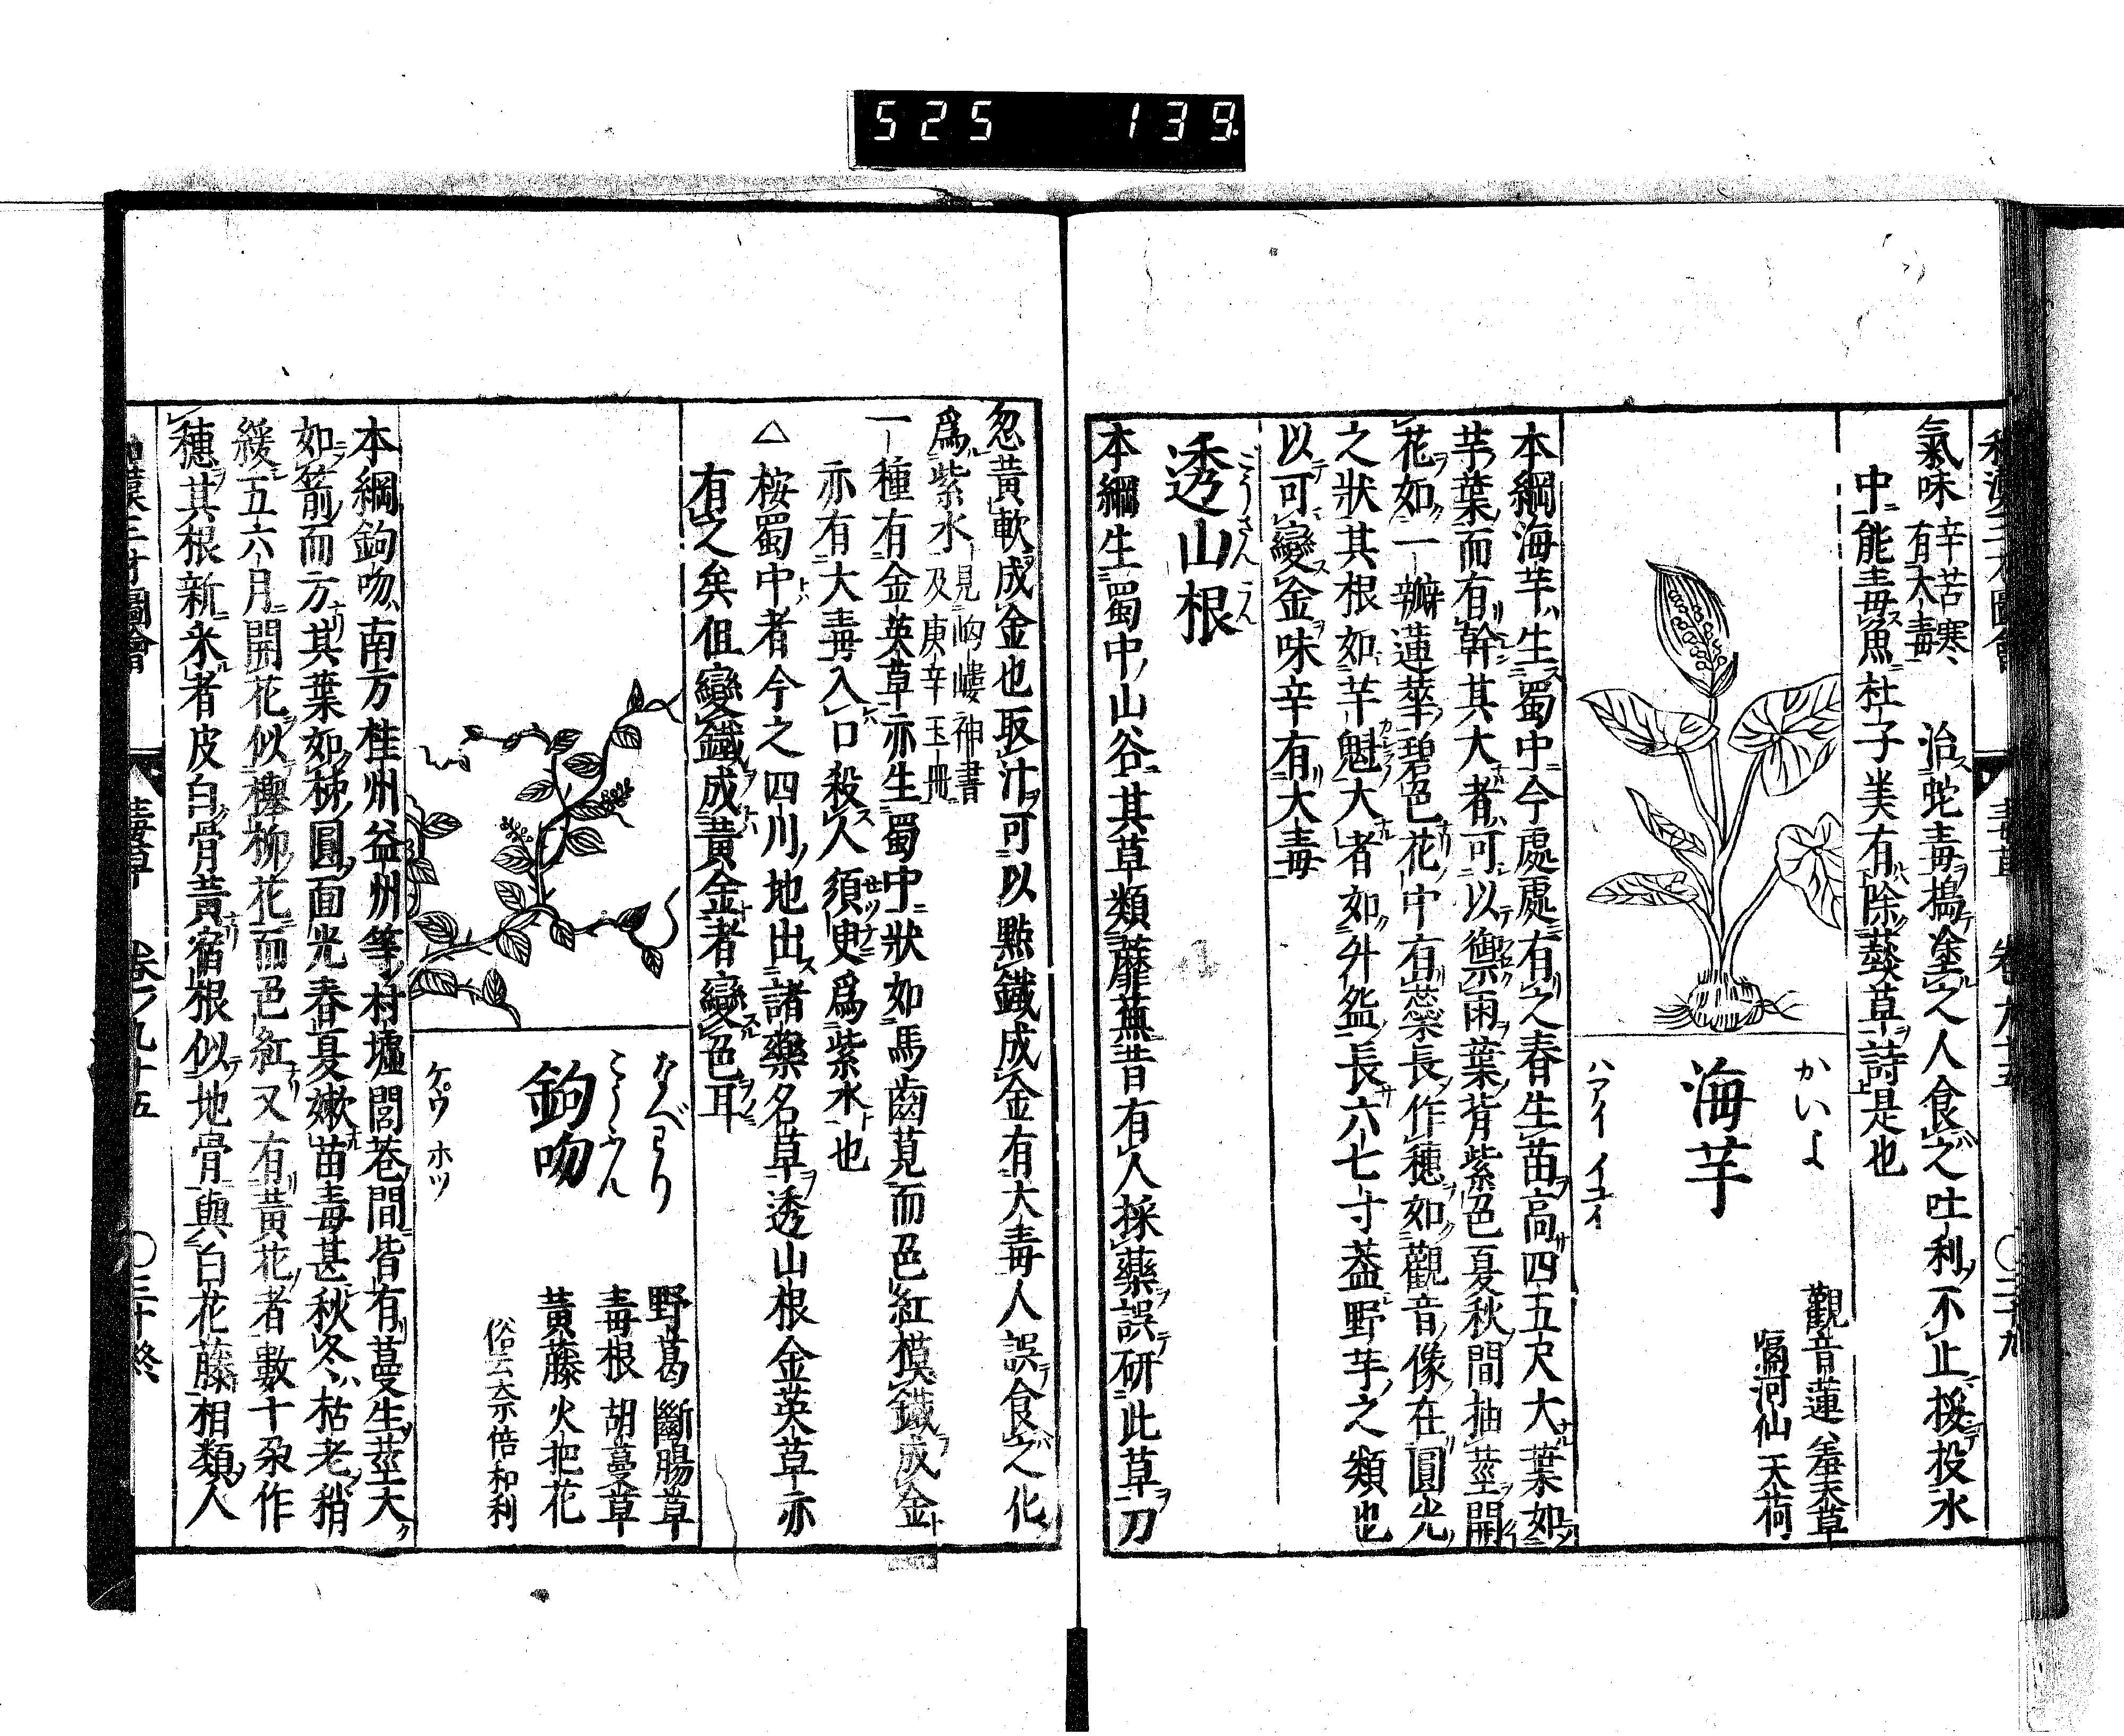 525 139
氣味 辛苦寒 有大毒 治蛇毒搗塗之人食之吐利不止投水
中能毒魚杜子美有除蕁草詩是也
かいよ
海芋
ハアイ イユイ
觀音蓮 羞天草
隔河仙 天荷
本綱海芋生蜀中今處處有之春生苗高四五尺大葉如
芋葉而有幹其大者可以禦雨葉背紫色夏秋間抽莖開
花如一瓣蓮華碧色花中有蕊長作穗如觀音像在圓光
之狀其根如芋魁大者如升盌長六七寸蓋野芋之類也
以可變金味辛有大毒
透山根
本綱生蜀中山谷其草類蘼蕪昔有人採藥誤研此草刀
忽黃軟成金也取汁可以點鐵成金有大毒人誤食之化
爲紫水 見岣嶁神書及庚辛玉冊
一種有金英草亦生蜀中狀如馬齒莧而色紅模鐵成金
亦有大毒入口殺人須臾爲紫水也
△ 桉蜀中者今之四川地出諸藥名草透山根金英草亦
有之矣但變鐵成黃金者變色耳
なべわり
こうふん
鉤吻
ケ゚ウ ホツ
野葛 斷腸草
毒根 胡蔓草
黃藤 火把花
俗云奈倍和利
本綱鉤吻南方桂州益州等村墟閭巷間皆有蔓生莖大
如箭而方其葉如柿圓面光春夏嫩苗毒甚秋冬枯老稍
緩五六月開花似櫸柳花而色紅又有黃花者數十朶作
穗其根新采者皮白骨黃宿根似地骨與白花藤相類人
毒草 卷ノ九十五 〇三十終